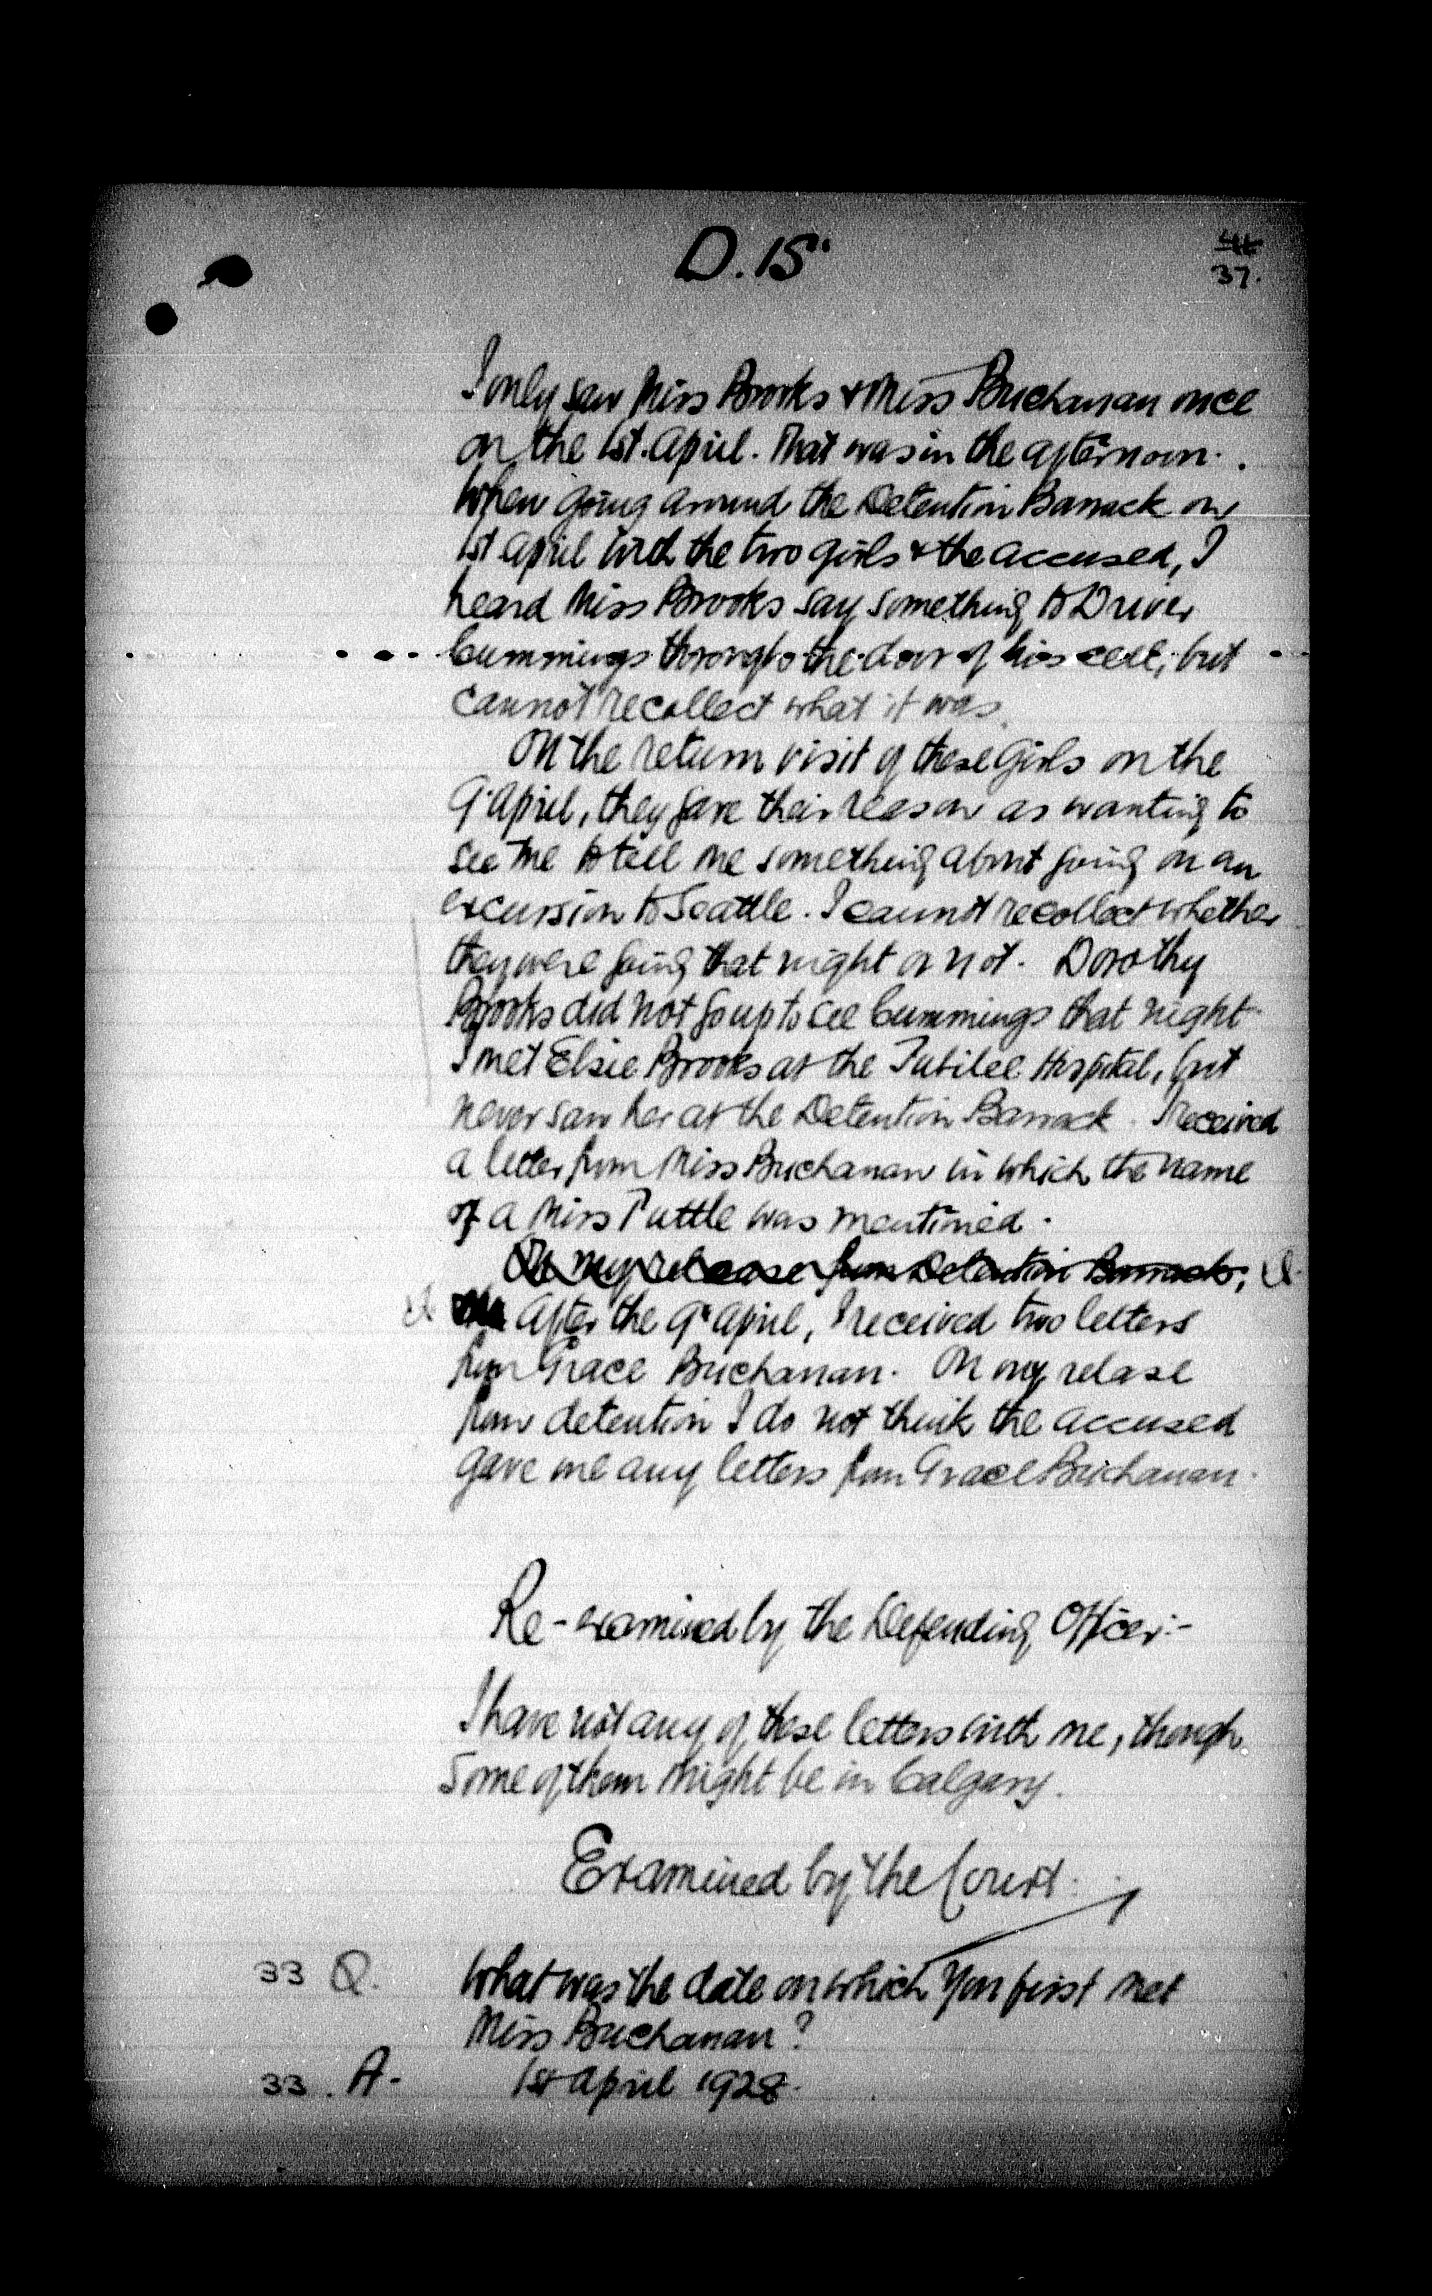 D.15
44
37.
I only saw Miss Brooks & Miss Buchanan once
on the 1st. April. That was in the afternoon.
When going around the Detention Barrack on
1st April with the two girls & the accused, I
heard Miss Brooks say something to Driver
Cummings through the door of his cell, but
cannot recollect what it was.
On the return visit of these girls on the
9 April, they gave their reason as wanting to
see me to tell me something about going on an
excursion to Seattle. I cannot recollect whether
they were going that night or not. Dorothy
Brooks did not go up to see Cummings that night
I met Elsie Brooks at the Jubilee Hospital, but
never saw her at the Detention Barrack. I received
a letter from Miss Buchanan in which the name
of a Miss Tuttle was mentioned.
On my release from Detention Barracks,
After the 9 April, I received two letters
from Grace Buchanan. On my relase
from detention I do not think the accused
gave me any letters from Grace Buchanan.
Re-examined by the Defending Officer:-
I have not any of these letters with me, though
some of them might be in Calgary.
Examined by the Court.
33 Q. What was the date on which you first met
Miss Buchanan?
33. A- 1st April 1928.